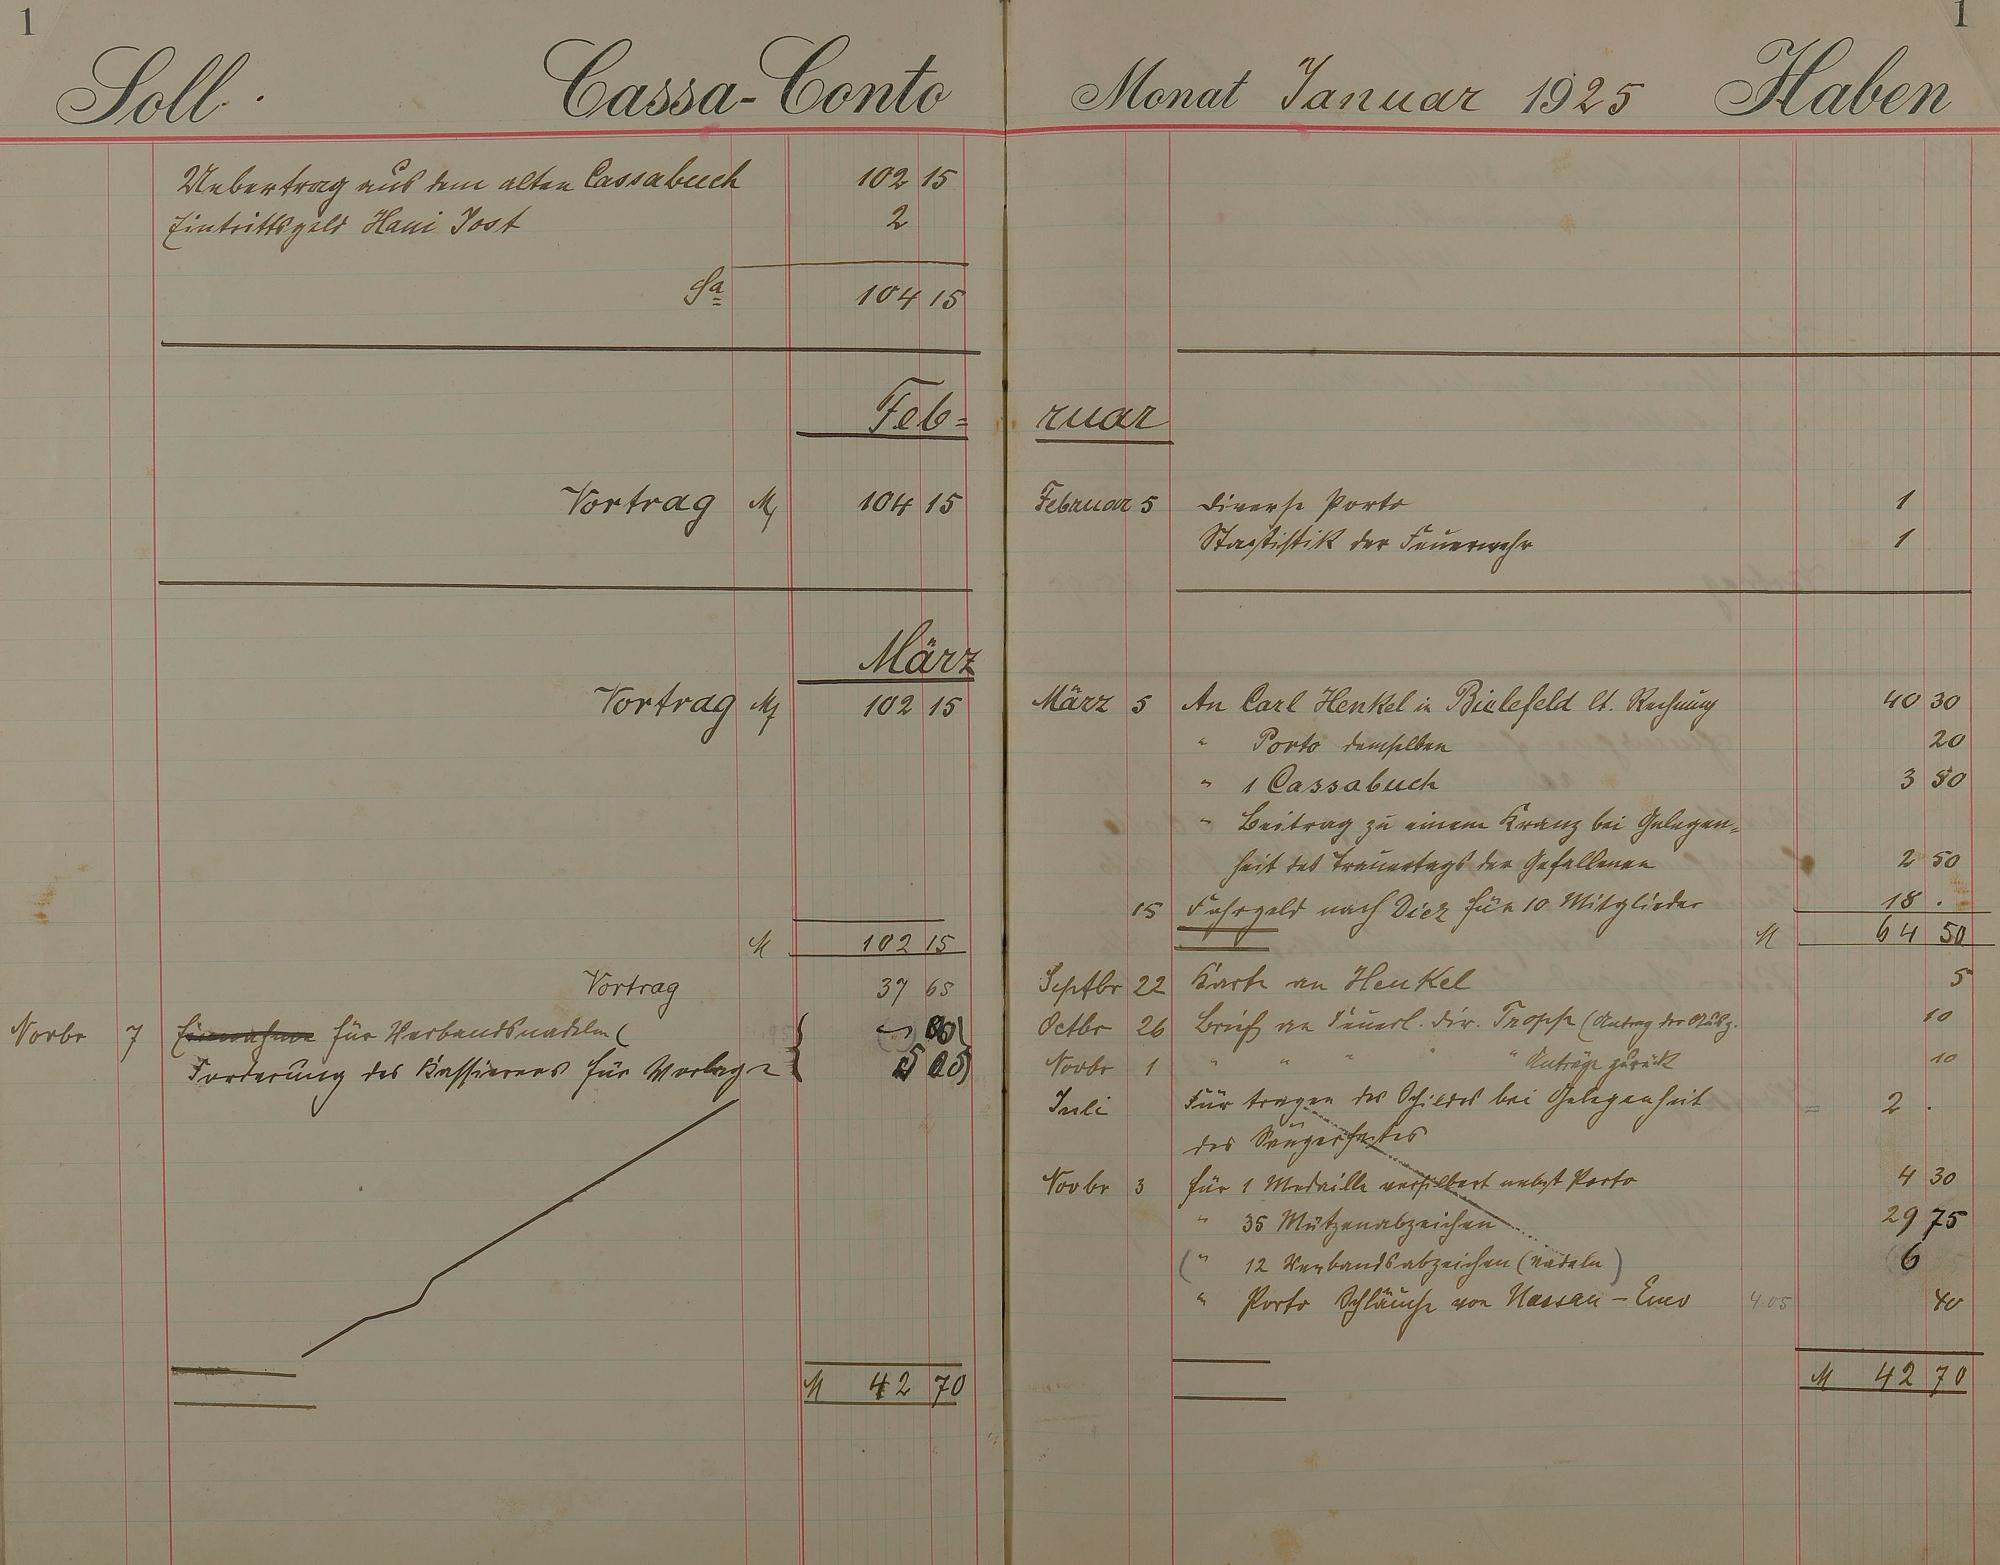 1
Soll
Cassa-Conto
Uebertrag aus dem alten Cassabuch 102 15
Eintrittsgeld Hani Jost 2
Sa 104 15
Feb=
Vortrag M 104 15
März
Vortrag M 102 15
M 102 15
Vortrag 37 65
Novbr 7 Einnahme für Verbandsnadeln (
Forderung des Kassierers für Vorlage 5 05
M 42 70
1
Monat Januar 1925 Haben
ruar
Februar 5 Diverse Porto 1
Stastistik der Feuerwehr 1
März 5 An Carl Henkel in Bielefeld lt. Rechnung 40 30
" Porto demselben 20
" 1 Cassabuch 3 50
" Beitrag zu einem Kranz bei Gelegen=
heit des Trauertags der Gefallenen 2 50
15 Fahrgeld nach Diez für 10 Mitglieder 18 .
M 64 50
Septbr 22 Karte an Henkel 5
Octbr 26 Brief an Feuerl. Dir. Tropp (Antrag der 10
Novbr 1 " " " " " Anträge zurück 10
Juli Für tragen des Schildes bei Gelegenheit 2 .
des Sängerfestes
Novbr 3 für 1 Medaille versilbert nebst Porto 4 30
" 35 Mützenabzeichen 29 75
(" 12 Verbandsabzeichen (nadeln) 6
" Porto Schläuche von Nassau - Ems 4.05 40
M 42 70